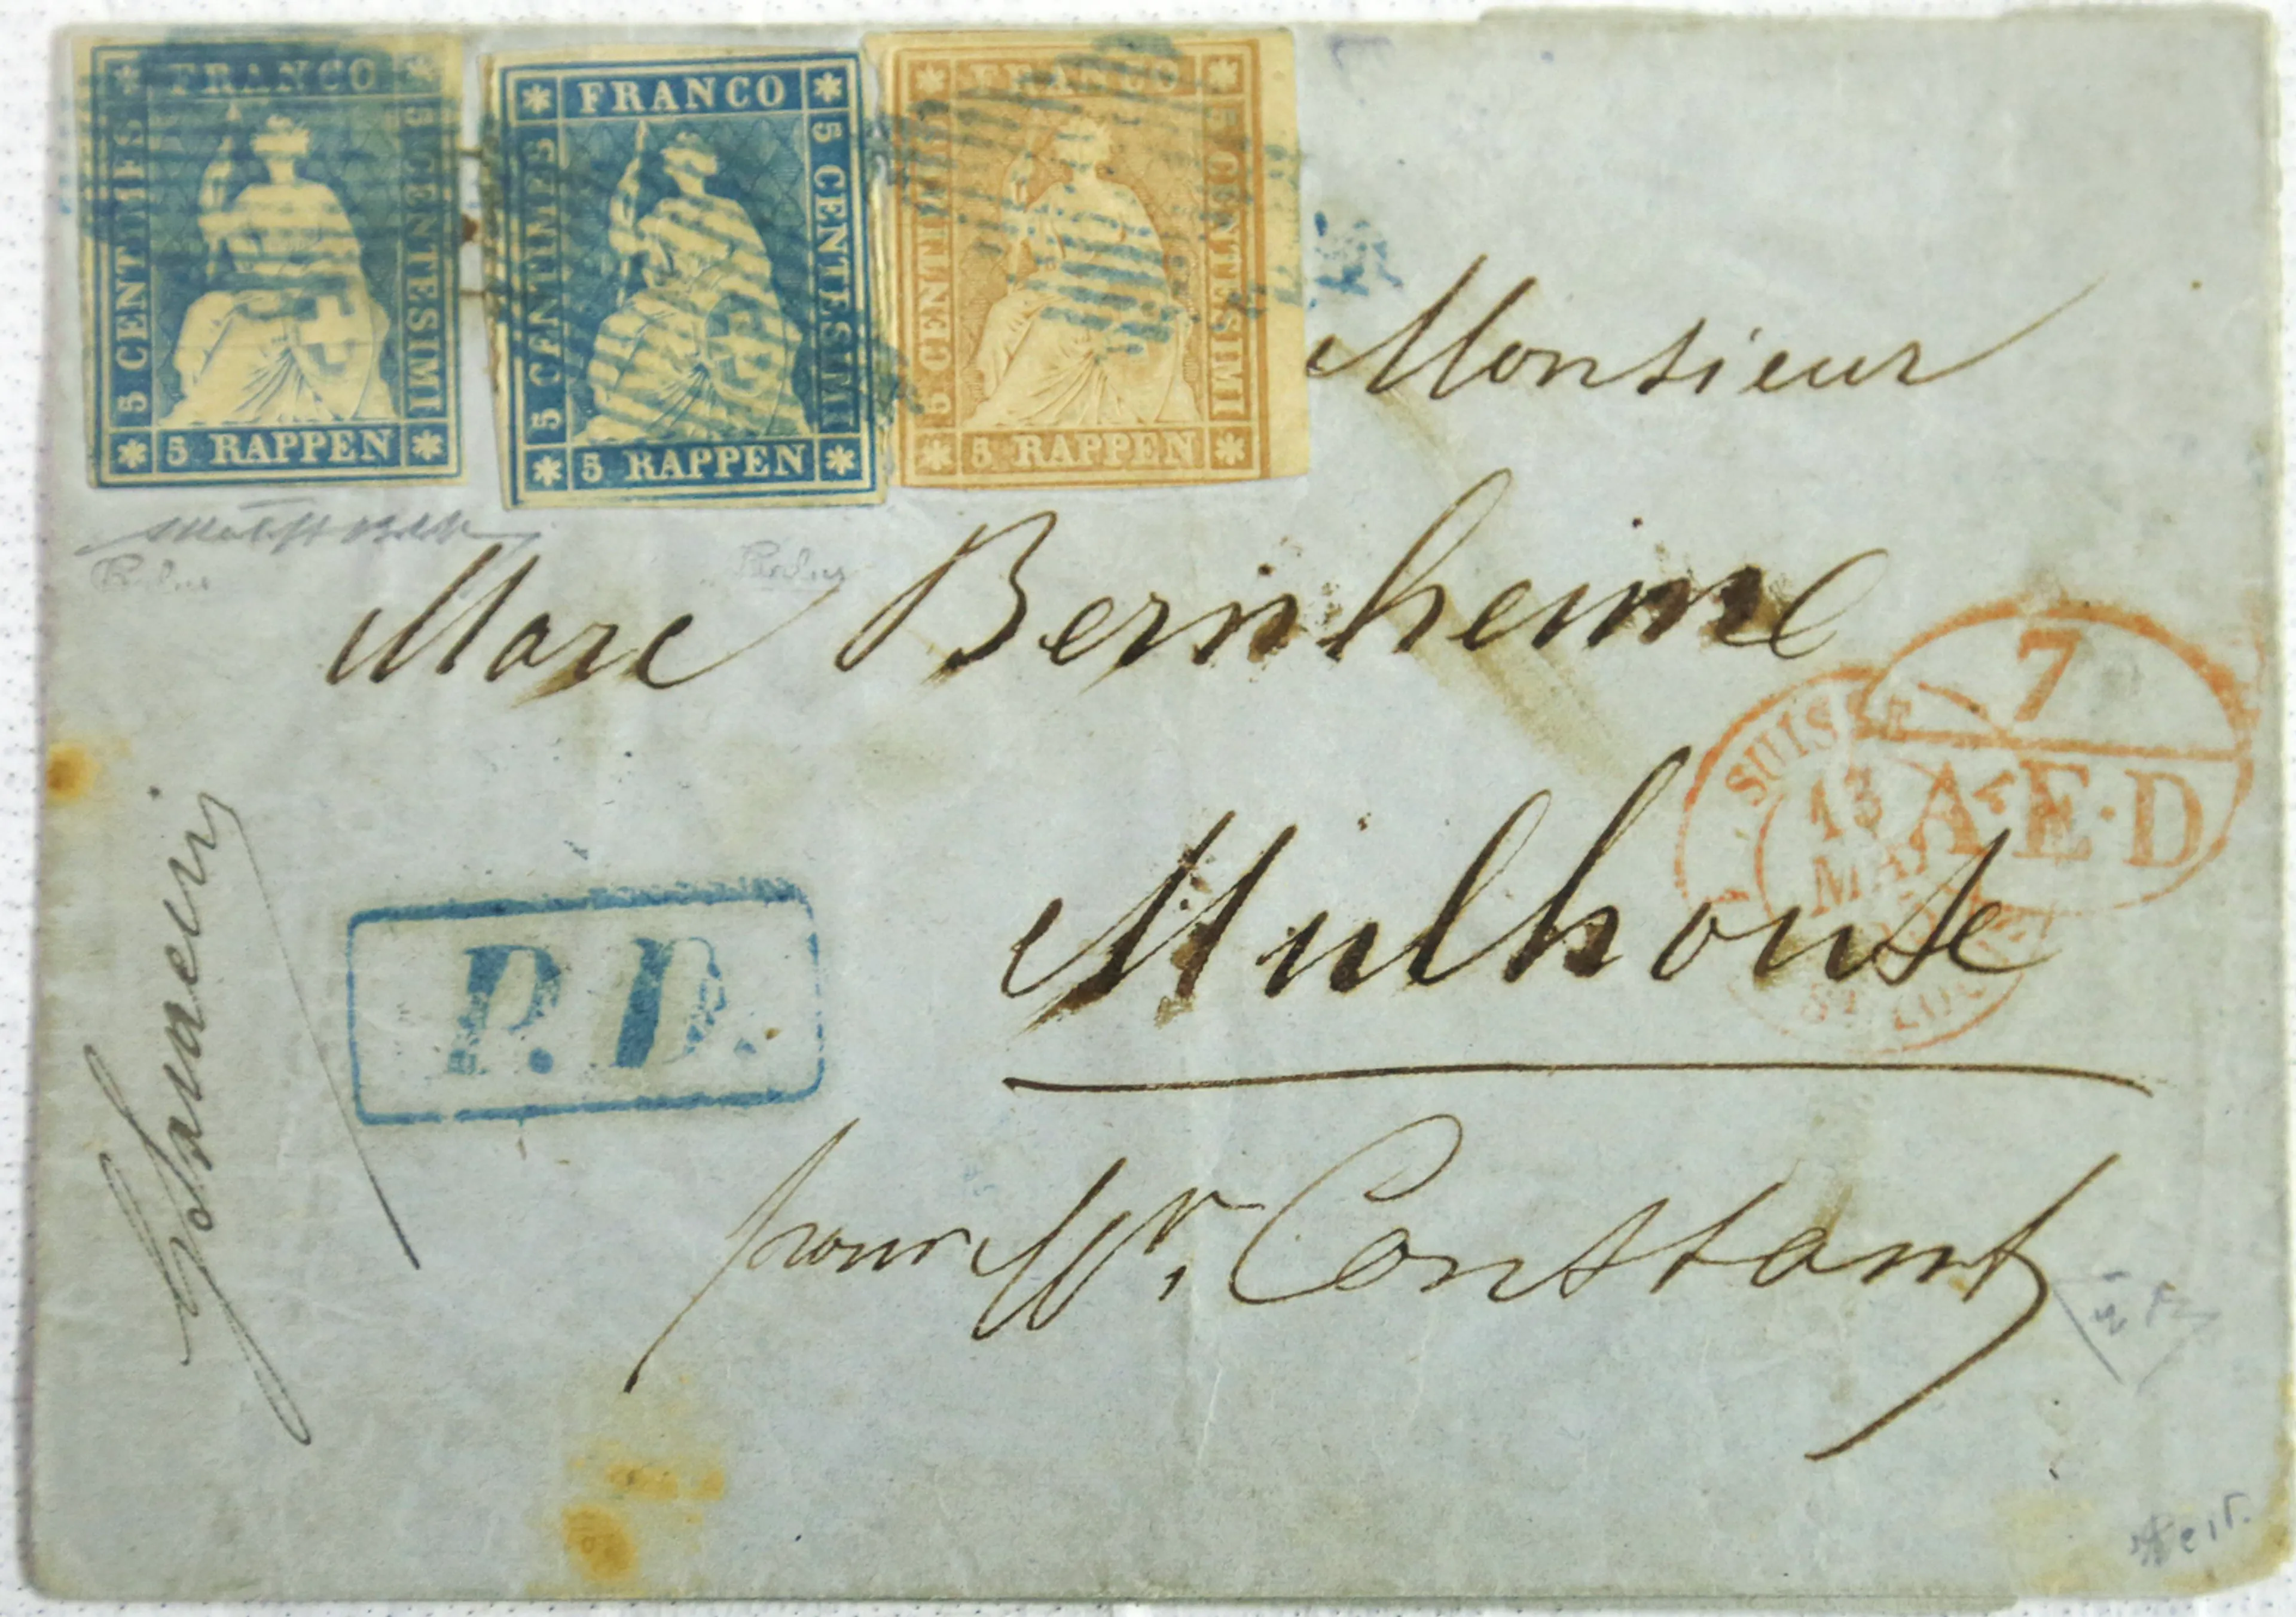 FRANCO
5 CENTIMES
5 CENTESIMI
5 RAPPEN
FRANCO
5 CENTIMES
5 CENTESIMI
5 RAPPEN
FRANCO
5 CENTIMES
5 CENTESIMI
5 RAPPEN
Monsieur
Marc Bernheime
7
A.E.D
SUISSE
13
MAI
ST LOUIS
Mulhouse
P.D.
pour Mr. Constant